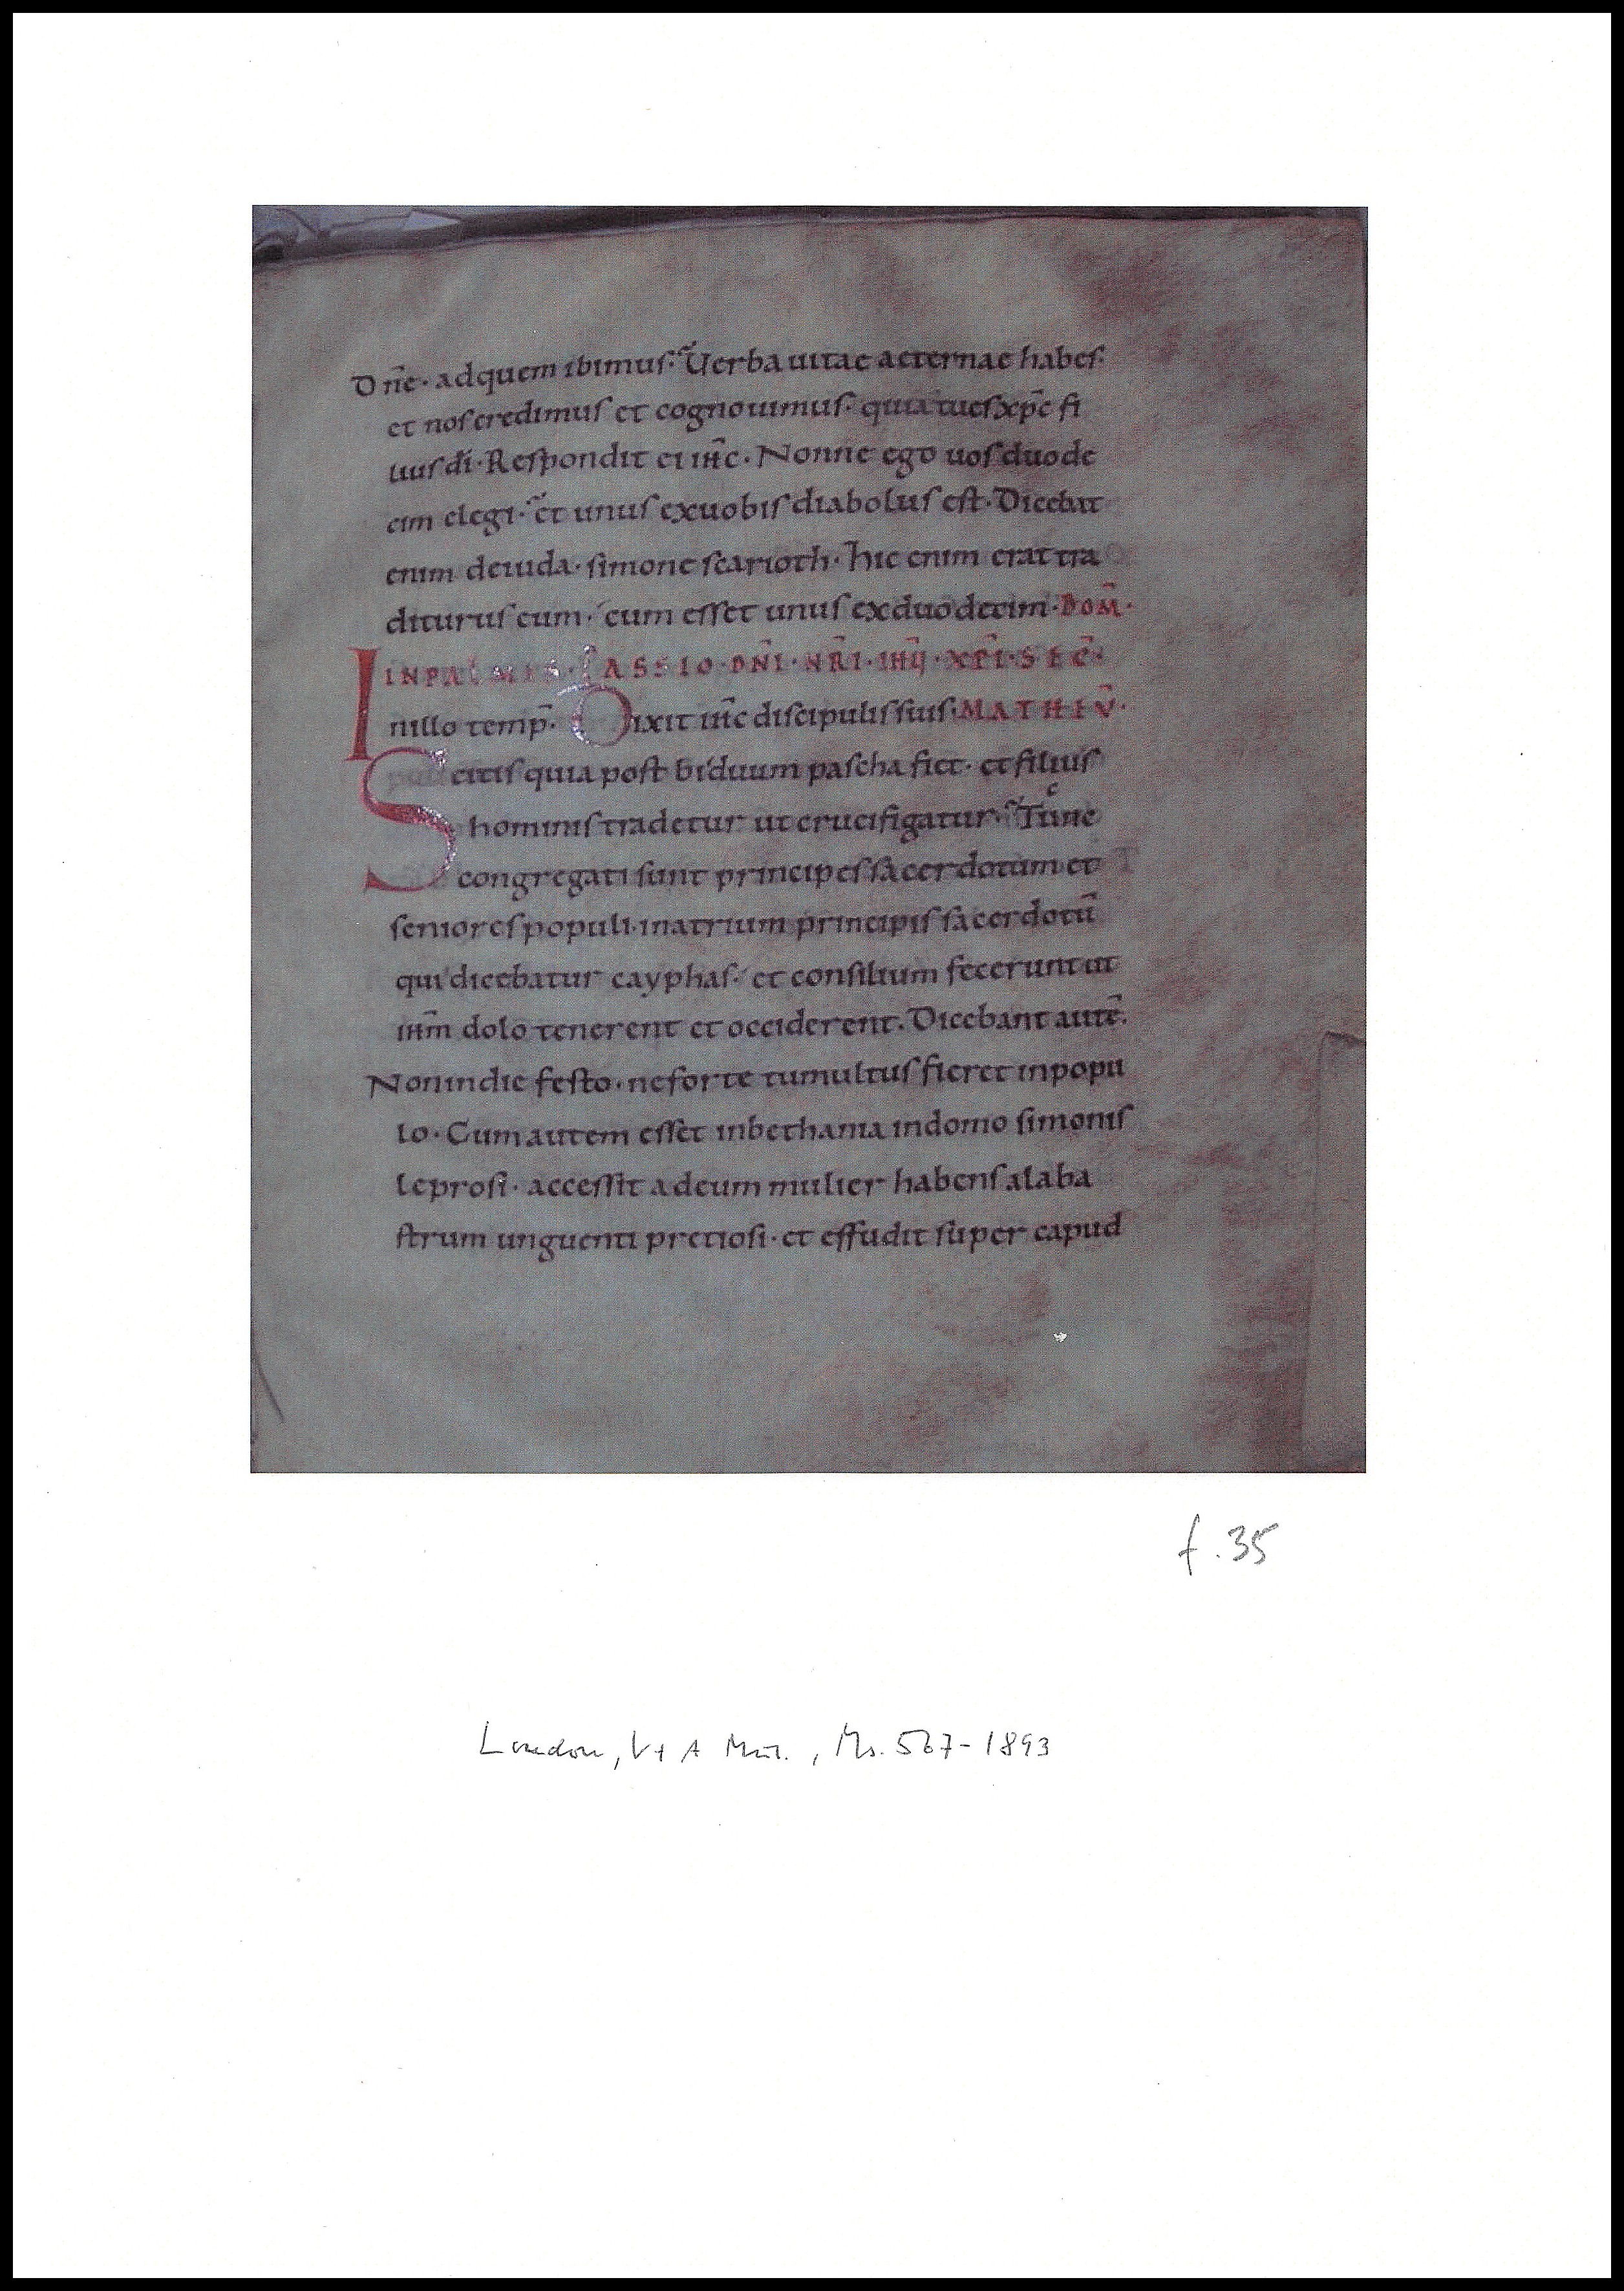 Dn̄e· adquem ibimus·̃ Uerba uitae aeternae habes·
et nos credimus et cognouimus· quia tu es xp̄c fi
lius dī· Respondit ei ih̄c· Nonne ego uos duode
cim elegi·̃ et unus exuobis diabolus est· Dicebat
enim deiuda· simone scarioth· hic enim erat tra
diturus eum· cum esset unus ex duodecim· DOM̄·
INPALMIS· PASSIO· DN̄I· NR̄I· IHŪ· XP̄I· SEC̄·
Inillo temp̄· Dixit ih̄c discipulis suis· MATHEŪ·
Scitis quia post biduum pascha fiet· et filius
hominis tradetur ut crucifigatur· Tunc
congregati sunt principes sacerdotum et
seniores populi· inatrium principis sacerdotū
qui dicebatur cayphas· et consilium fecerunt ut
ihm̄ dolo tenerent et occiderent. Dicebant autē.
Nonindie festo· neforte tumultus fieret inpopu
lo· Cum autem esset inbethania indomo simonis
leprosi· accessit adeum mulier habens alaba
strum unguenti pretiosi· et effudit super capud
f. 35
London, V+A Mus., Ms. 567-1893